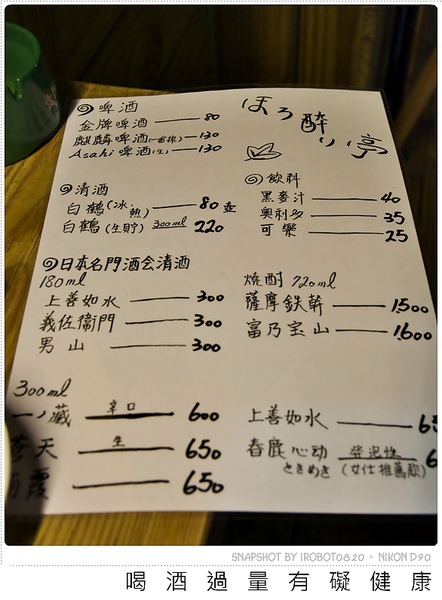 ほろ酔り亭
啤酒
金牌啤酒 80
麒麟啤酒(一番搾) 130
Asahi 啤酒(生) 130
清酒
白鶴(冰.熱) 80 壺
白鶴(生貯) 300ml 220
飲料
黑麥汁 40
奧利多 35
可樂 25
日本名門酒会清酒
180ml
上善如水 300
義佐衛門 300
男山 300
焼酎 720ml
薩摩鉄幹 1,500
富乃宝山 1,600
300ml
一ノ藏 辛口 600
天 生 650
霞 650
上善如水
春鹿心动
ときめき (女仕推薦款)
SNAPSHOT BY IROBOT0820 。 NIKON D90
喝酒過量有礙健康